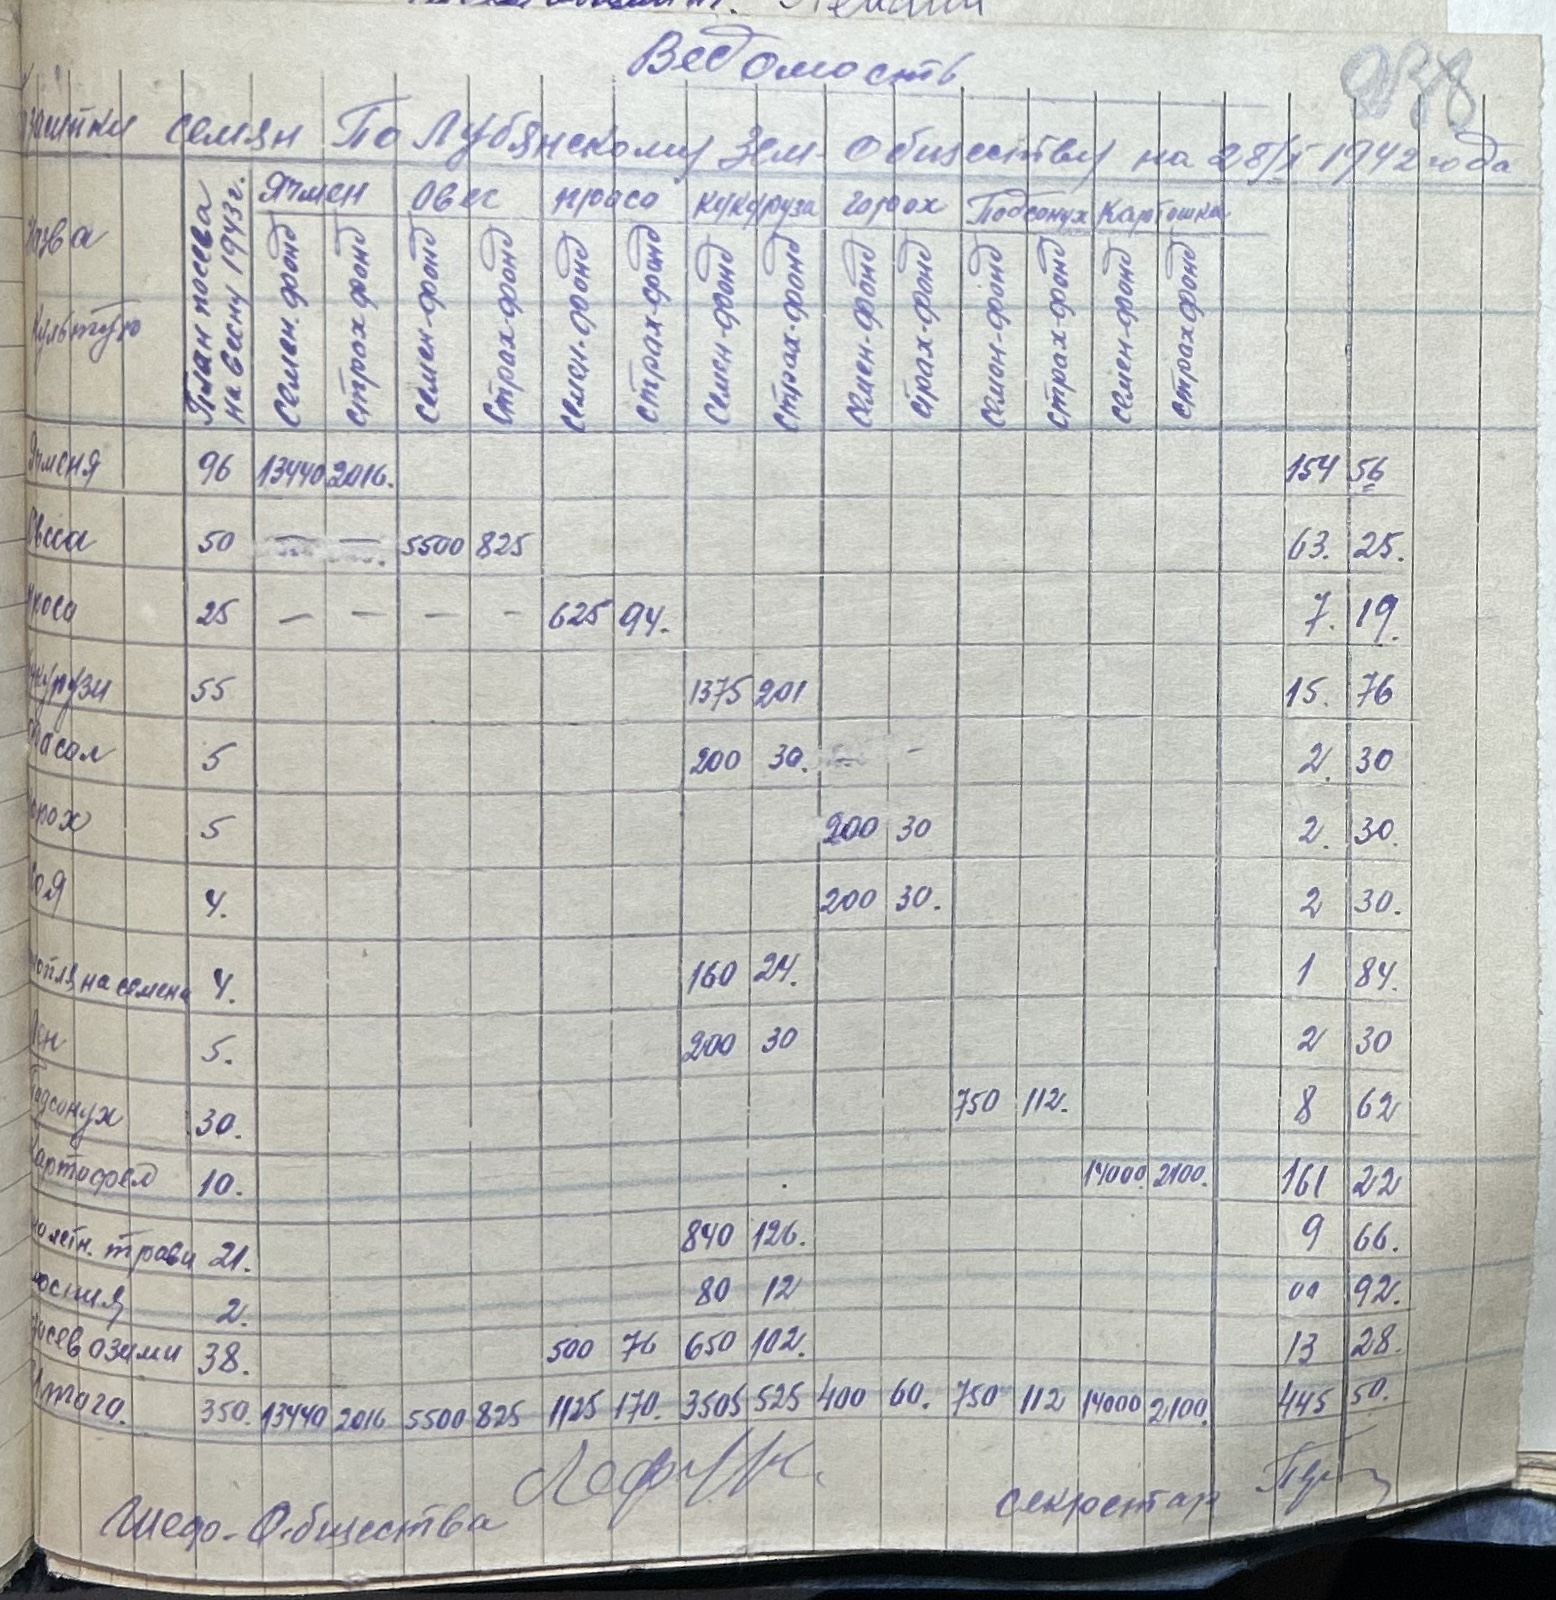 Ведомость
семян По Лубянскому Зем- Обществу на 28/X 1942 года
План посева на весну 1943 г. Ячмен Овес просо кукуруза горох Подсонух Картошка
Семен. фонд страх фонд семен-фонд Страх-фонд семен-фонд страх-фонд Семен-фонд страх-фонд семен-фонд страх-фонд семен-фонд страх-фонд семен-фонд страх фонд
Ячменя 96 13440 2016. 154 56
Овса 50 — — 5500 825 63. 25.
проса 25 — — — — 625 94. 7. 19.
кукурузи 55 1375 201 15. 76
5 200 30. - 2. 30
горох 5 200 30 2. 30.
Соя 4. 200 30. 2 30.
на семена 4. 160 24. 1 84.
Лен 5. 200 30 2 30
Падсонух 30. 750 112. 8 62
Картофел 10. 14000. 2100. 161 22
трави 21. 840 126. 9 66.
2. 80 12 00 92.
озими 38. 500 76 650 102. 13 28.
Итого. 350. 13440 2016 5500 825 1125 170. 3505 525 400 60. 750 112 14000 2100. 445 50.
Общества
секрентар